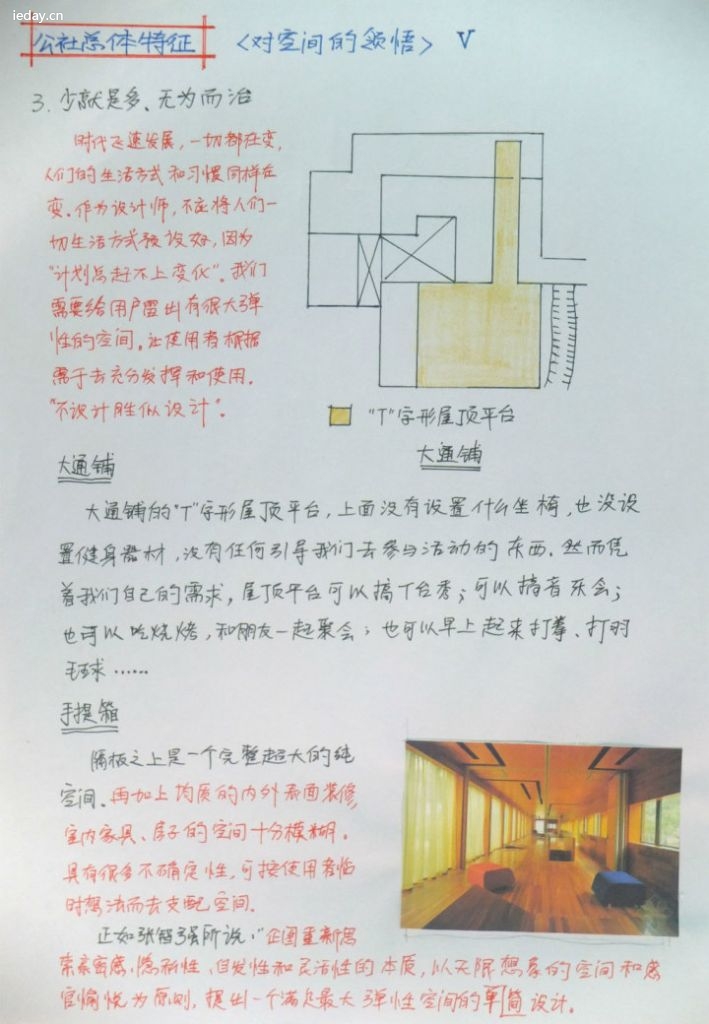 ieday.cn
公社总体特征 〈对空间的领悟〉 V
3. 少就是多、无为而治
时代飞速发展，一切都在变，
人们的生活方式和习惯同样在
变。作为设计师，不应将人们一
切生活方式预设好，因为
"计划总赶不上变化"。我们
需要给用户留出有很大弹
性的空间。让使用者根据
需于去充分发挥和使用。
"不设计胜似设计"。
"T"字形屋顶平台
大通铺
大通铺
大通铺的"T"字形屋顶平台，上面没有设置什么坐椅，也没设
置健身器材，没有任何引导我们去参与活动的东西。然而凭
着我们自己的需求，屋顶平台可以搞T台秀；可以搞音乐会；
也可以吃烧烤，和朋友一起聚会；也可以早上起来打拳、打羽
毛球……
手提箱
隔板之上是一个完整超大的纯
空间。再加上均质的内外表面装修，
室内家具、房子的空间十分模糊。
具有很多不确定性，可按使用者临
时想法而去支配空间。
正如张智强所说："企图重新思
索亲密感、隐私性、自发性和灵活性的本质，以无限想象的空间和感
官愉悦为原则，提出一个满足最大弹性空间的单简设计。